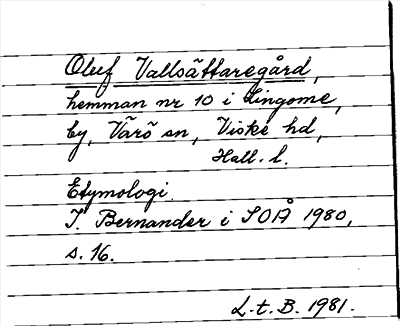 Oluf Vallsättaregård,
hemman nr 10 i Lingome,
by, Värö sn, Viske hd,
Hall. l.
Etymologi.
I. Bernander i SOÅ 1980,
s. 16.
L.t.B. 1981.